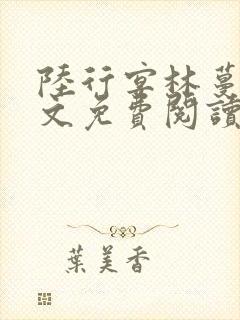 陸行宴林蔓
文免費閱讀
葉美香